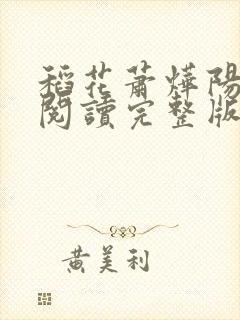 稻花蕭燁陽
閱讀完整版
黃美利